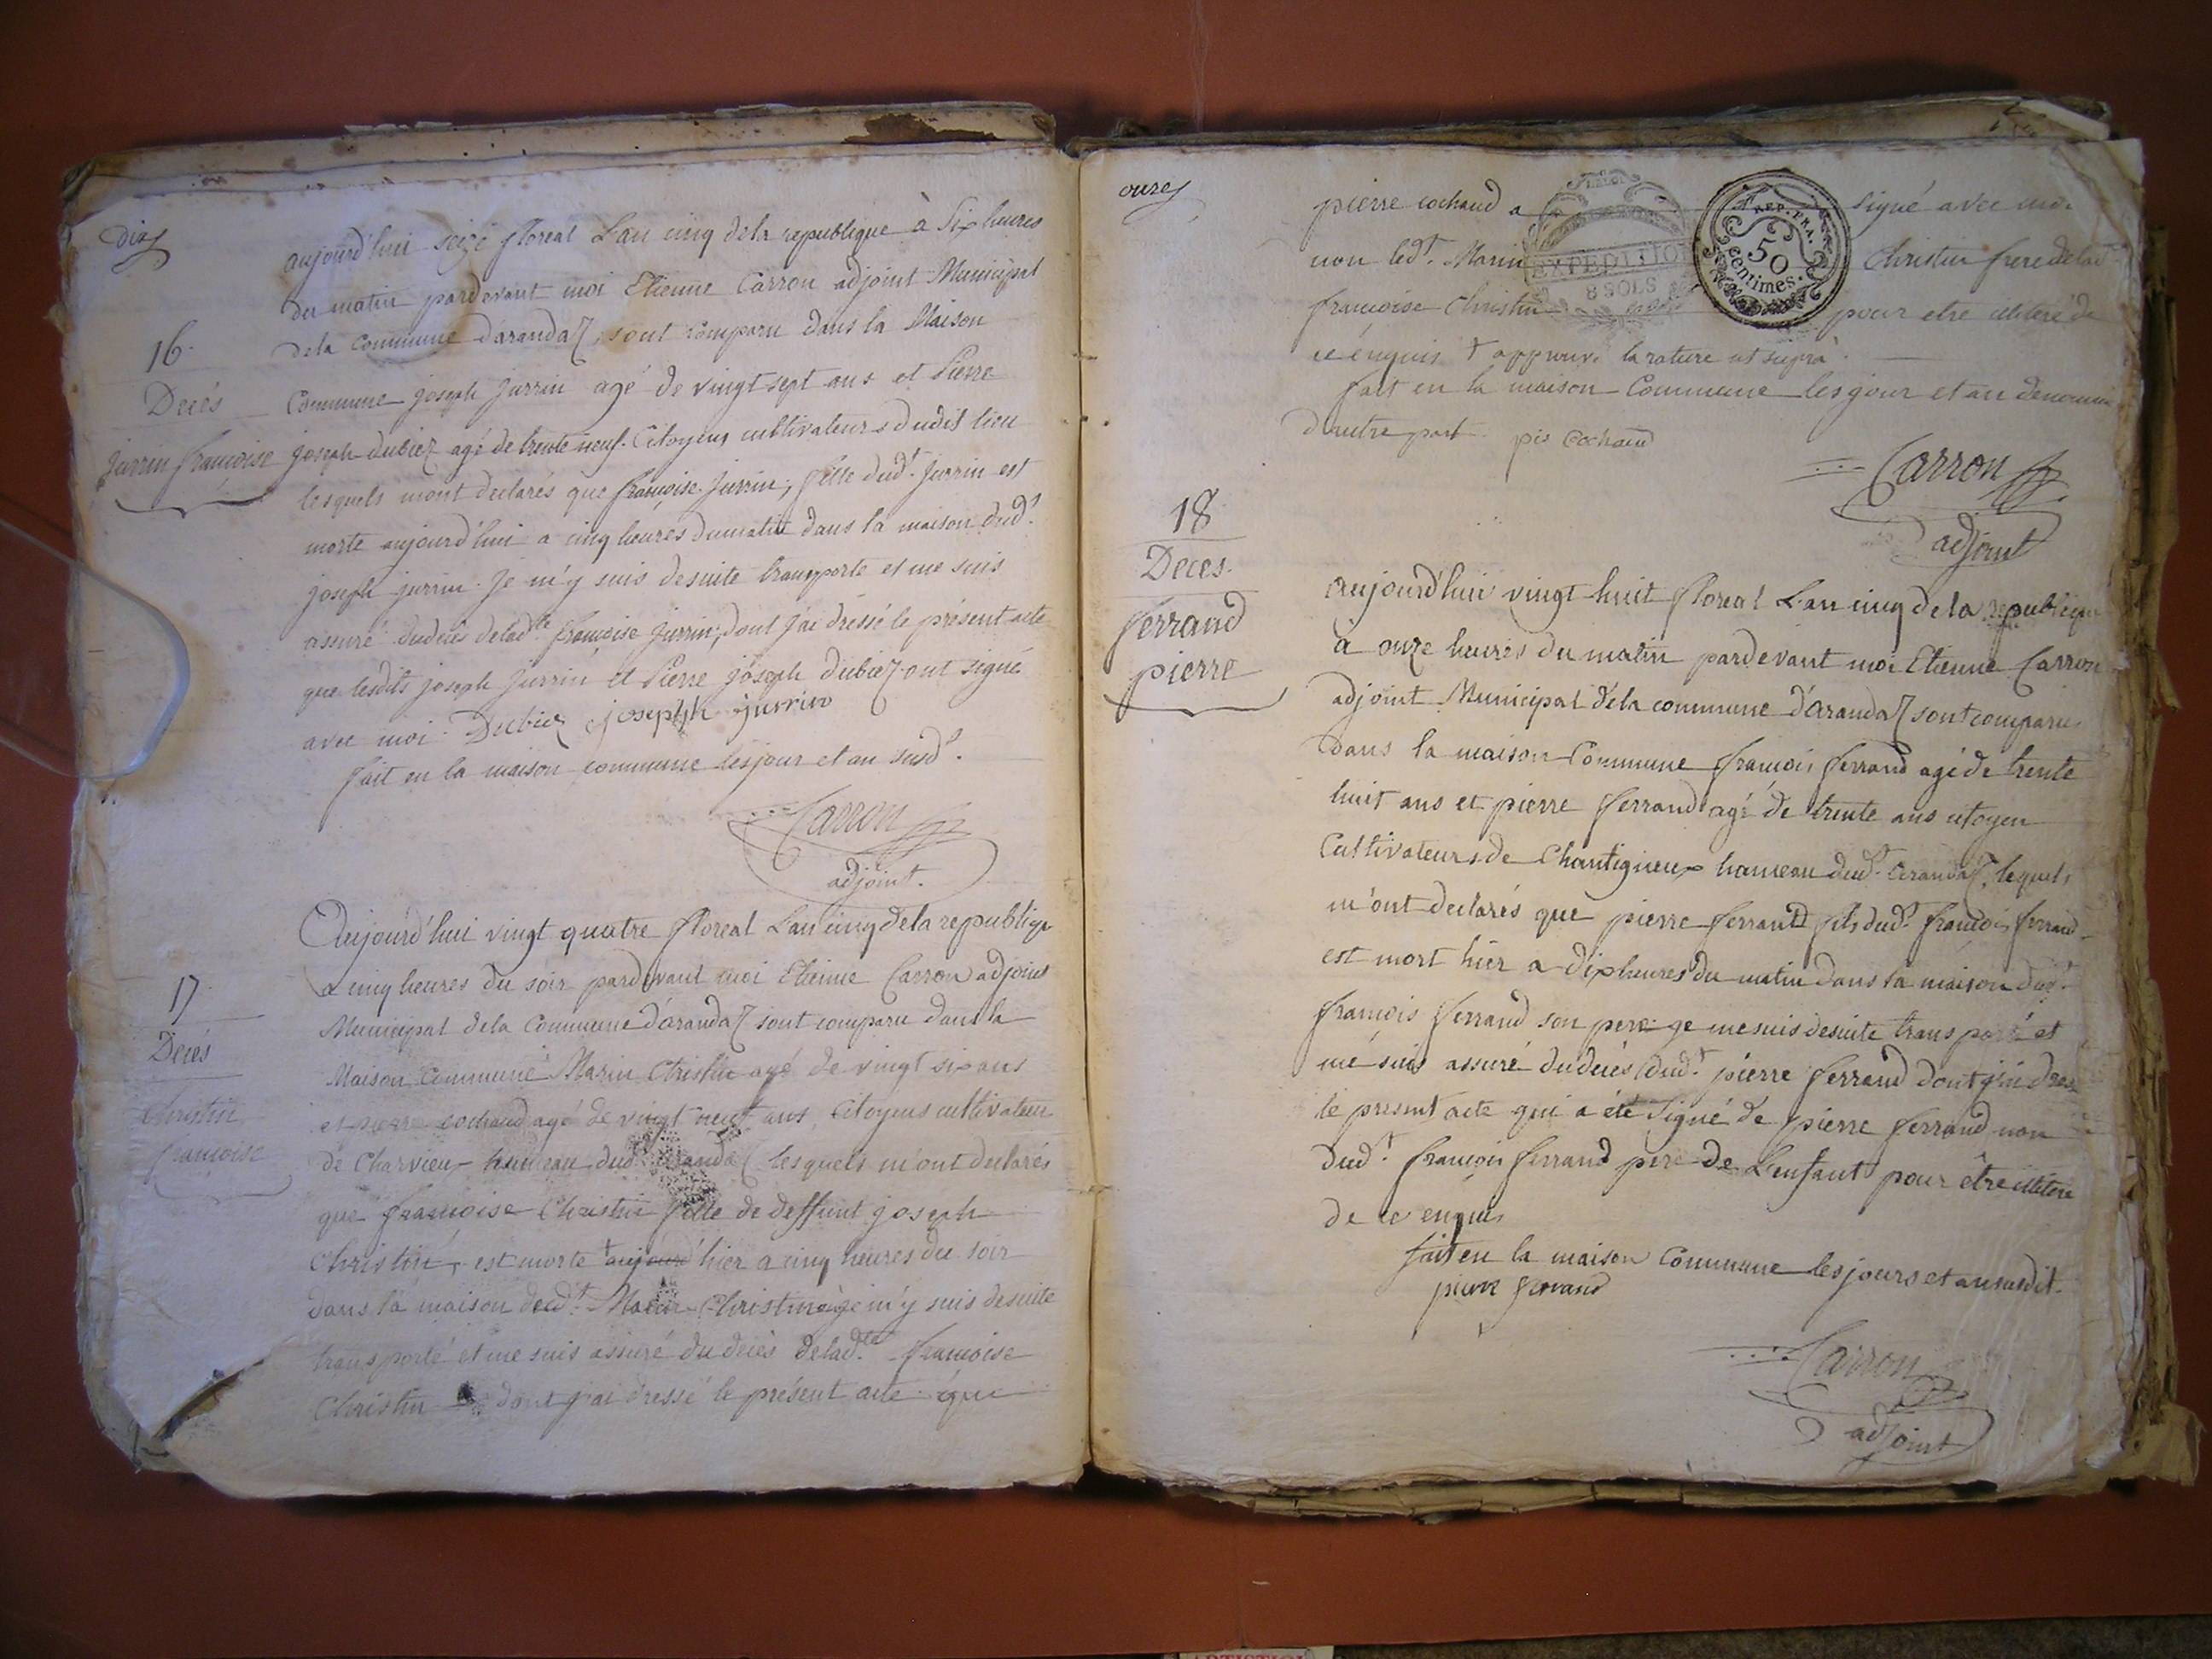 dix
aujourd'hui seize floreal L'an cinq dela republique à Six heures
du matin pardevant moi Etienne Carron adjoint Municipal
dela commune d'arandaz, sont comparu dans la Maison
16
Decés
Jurrin françoise
Commune joseph jurrin agé de vingt sept ans et Pierre
joseph dubiez agé de trente neuf. Citoyens cultivateurs dudit lieu
lesquels mont declarés que françoise Jurrin, fille dudt. Jurrin est
morte aujourd'hui a cinq heures dumatin dans la maison dudt.
joseph jurrin. Je m'y suis desuite transporté et me suis
assuré dudeces deladte. françoise jurrin, dont j'ai dressé le présent acte
que lesdits joseph Jurrin et Pierre joseph dubiez ont signé
avec moi. Dubiez josephh jurrin
fait en la maison commune lesjour et an susdt.
Carron
adjoint.
Aujourd'hui vingt quatre floreal L'an cinq dela republique
a cinq heures du soir pardevant moi Etienne Carron adjoint
17
Decés
Christin
françoise
Municipal dela Commune d'arandaz sont comparu dans la
Maison Commune Marin Christin agé de vingt six ans
et pierre cochaud agé de vingt neuf ans, Citoyens cultivateur
de Charvieux hameau dudt. arandaz lesquels m'ont declarés
que françoise Christin fille de deffunt joseph
Christin, est morte † aujourd'hier a cinq heures du soir
dans la maison dudt. Marin Christin je m'y suis desuite
transporté et me suis assuré du deces deladte. françoise
Christin dont j'ai dressé le présent acte que
onzes
pierre cochaud a signé avec moi
non ledt. Marin Christin frere delad
françoise Christin pour etre illiteré de
ce enquis † approuvé la rature ut supra.
fait en la maison Commune les jour et an denommé
d'autre part. pie Cochaud
EXPEDITION
8 SOLS
REP. FRA.
50
centimes.
Carron
adjoint
18
Deces.
ferrand
pierre
aujourd'hui vingt huit floreal L'an cinq de la republique
à onze heures du matin pardevant moi Etienne Carron
adjoint Municipal dela commune d'arandaz sont comparu
dans la maison Commune françois ferrand agé de trente
huit ans et pierre ferrand agé de trente ans citoyen
Cultivateurs de Chantigneux hameau dudt. arandaz, lequels
m'ont declarés que pierre ferrand fils dudt. françois ferrand
est mort hier a dix heures du matin dans la maison dudt.
françois ferrand son pere. je me suis desuite transporté et
mé suis assuré dudeces dudt. pierre ferrand dont j'ai dressé
le present acte qui a été signé de pierre ferrand non
dudt. françois ferrand pere de L'enfant pour être illitere
de ce enquis
fait en la maison Commune les jours et an susdit.
pierre ferrand
Carron
adjoint